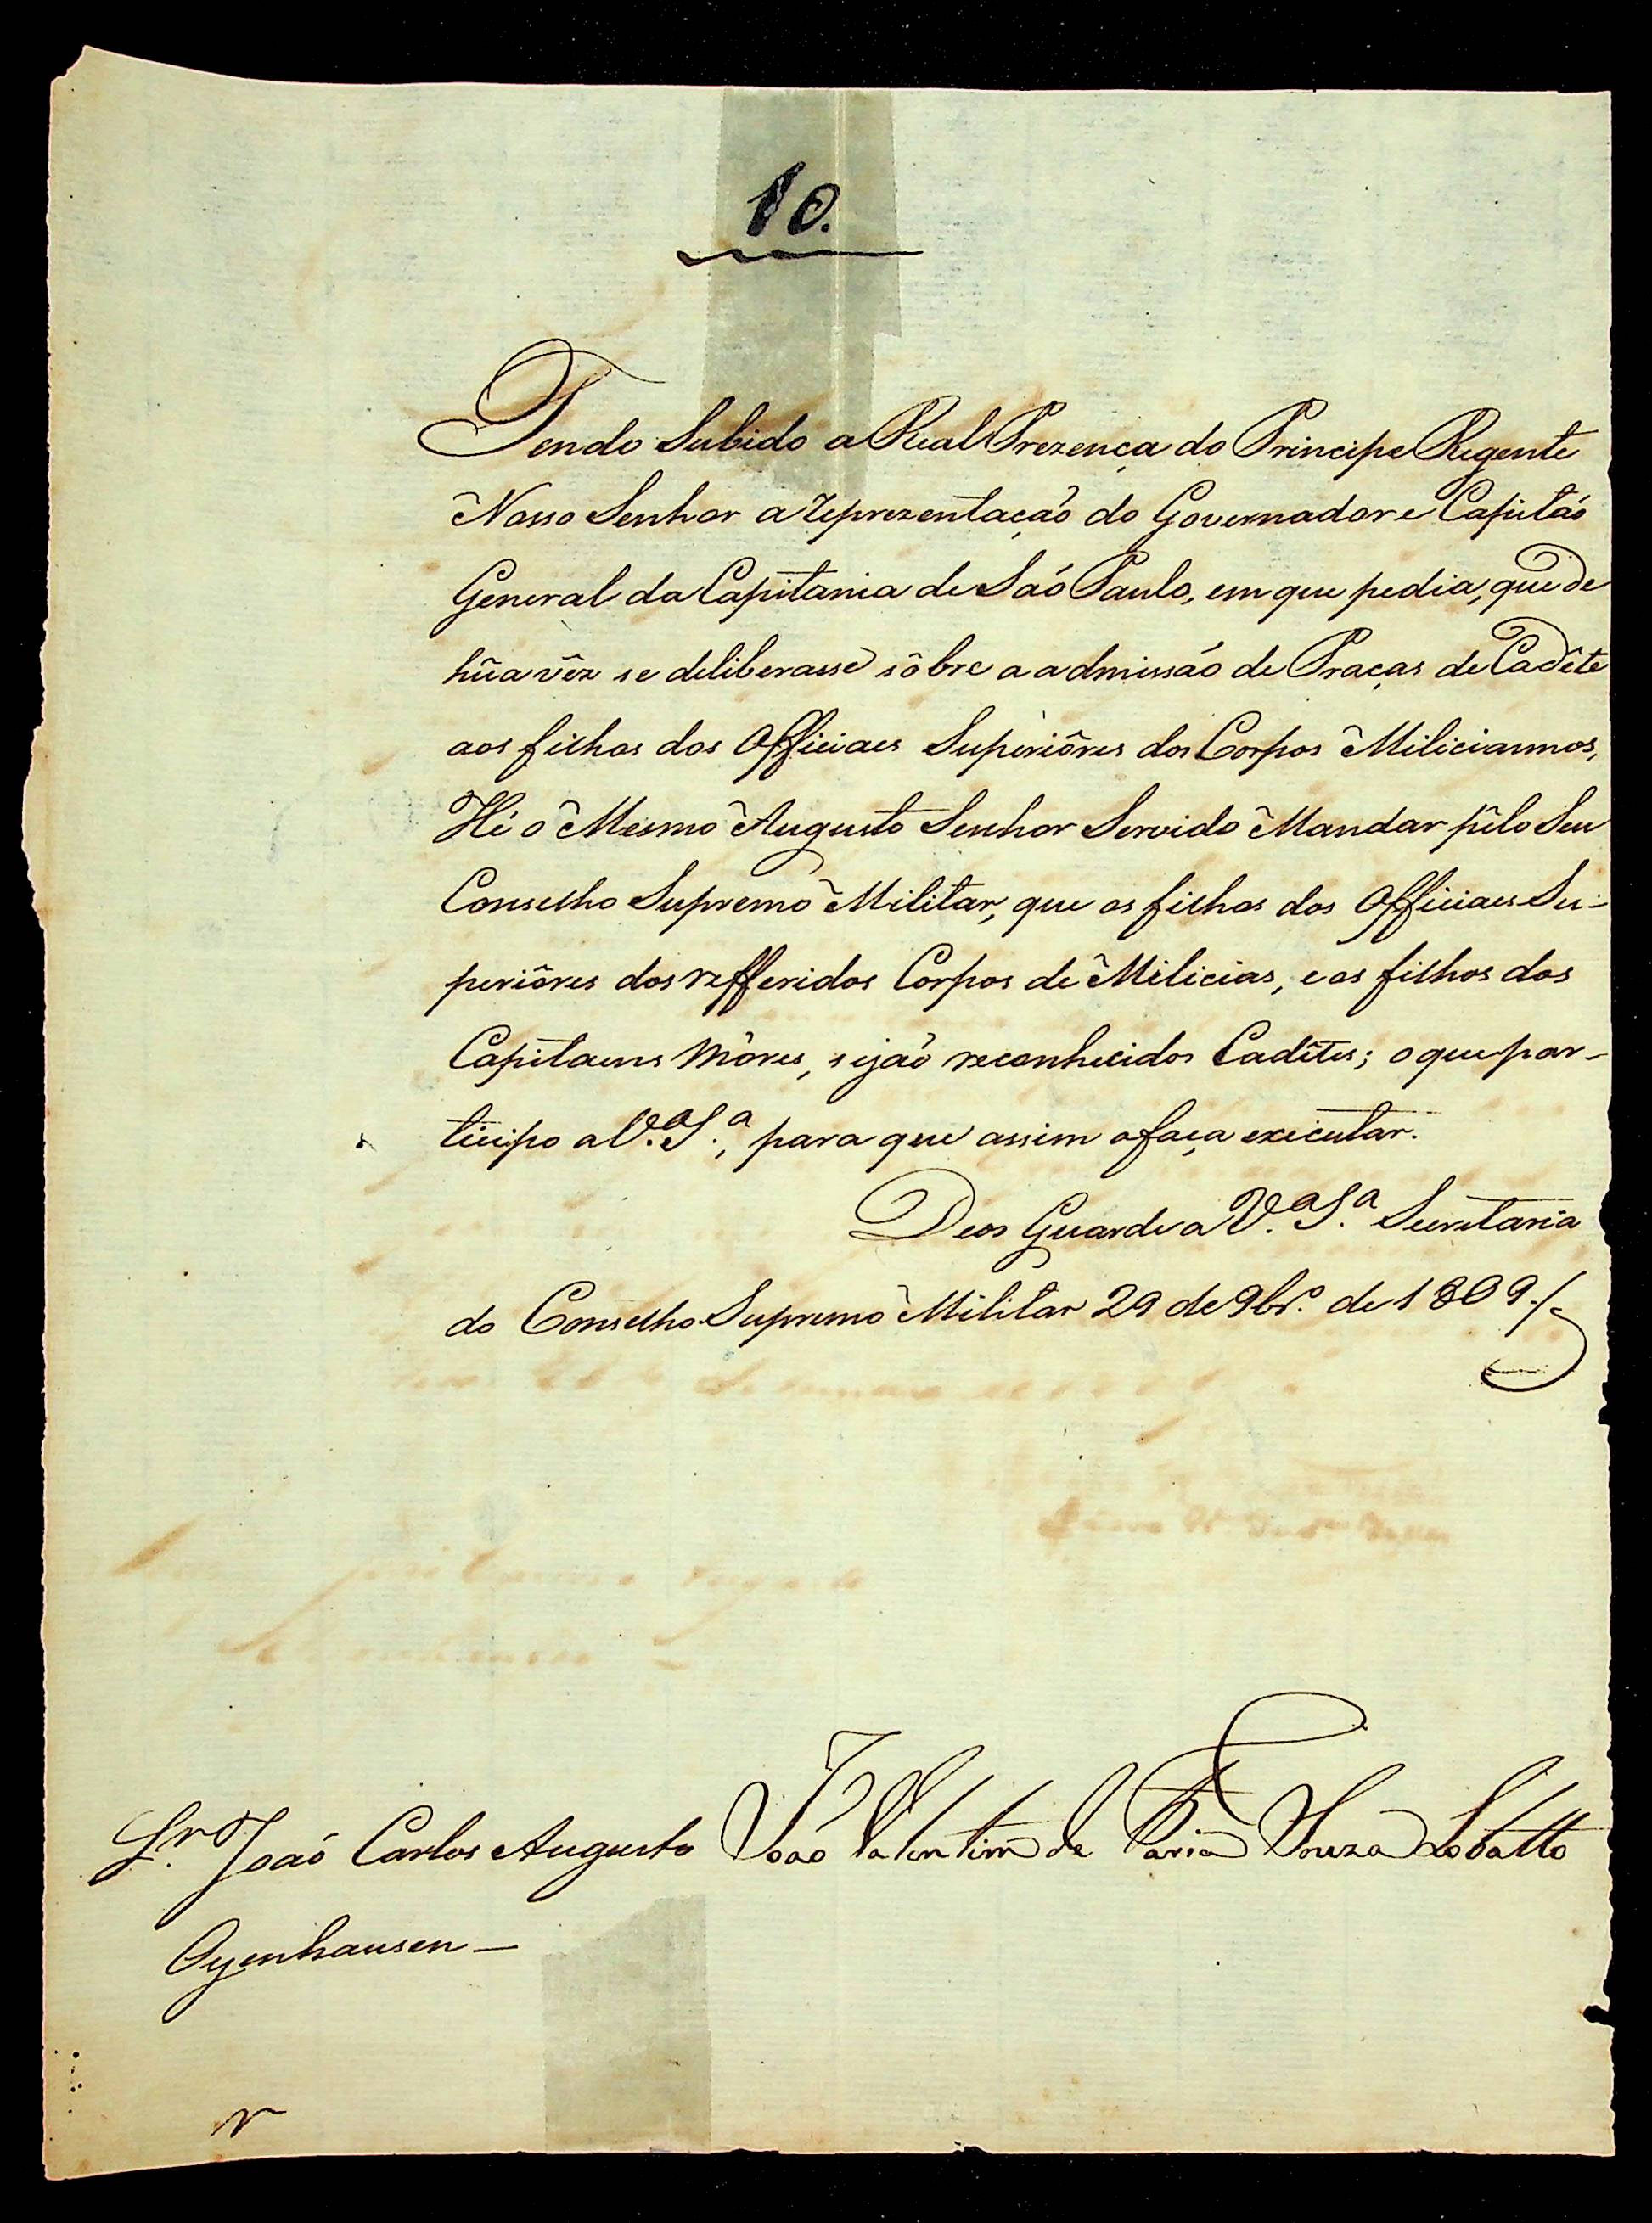 10.
Tendo Subido a Real Prezença do Principe Regente
Nosso Senhor a reprezentação do Governador e Capitão
General da Capitania de São Paulo, em que pedia, que de
hũa vêz se deliberasse sôbre a admissão de Praças de Cadête
aos filhos dos Officiaes Superiôres dos Corpos Miliciannos,
Hé o Mesmo Augusto Senhor Servido Mandar pêlo Seu
Conselho Supremo Militar, que os filhos dos Officiaes Su-
periôres dos refferidos Corpos de Milicias, e os filhos dos
Capitaens Móres, sejão reconhecidos Cadêtes; o que par-
ticipo a V.ª S.ª, para que assim o faça executar.
Deos Guarde a V.ª S.ª Secretaria
do Conselho Supremo Militar 29 de 9br.º de 1809./
João Valentim de Faria Souza Lobatto
Sr. João Carlos Augusto
Oyenhausen_